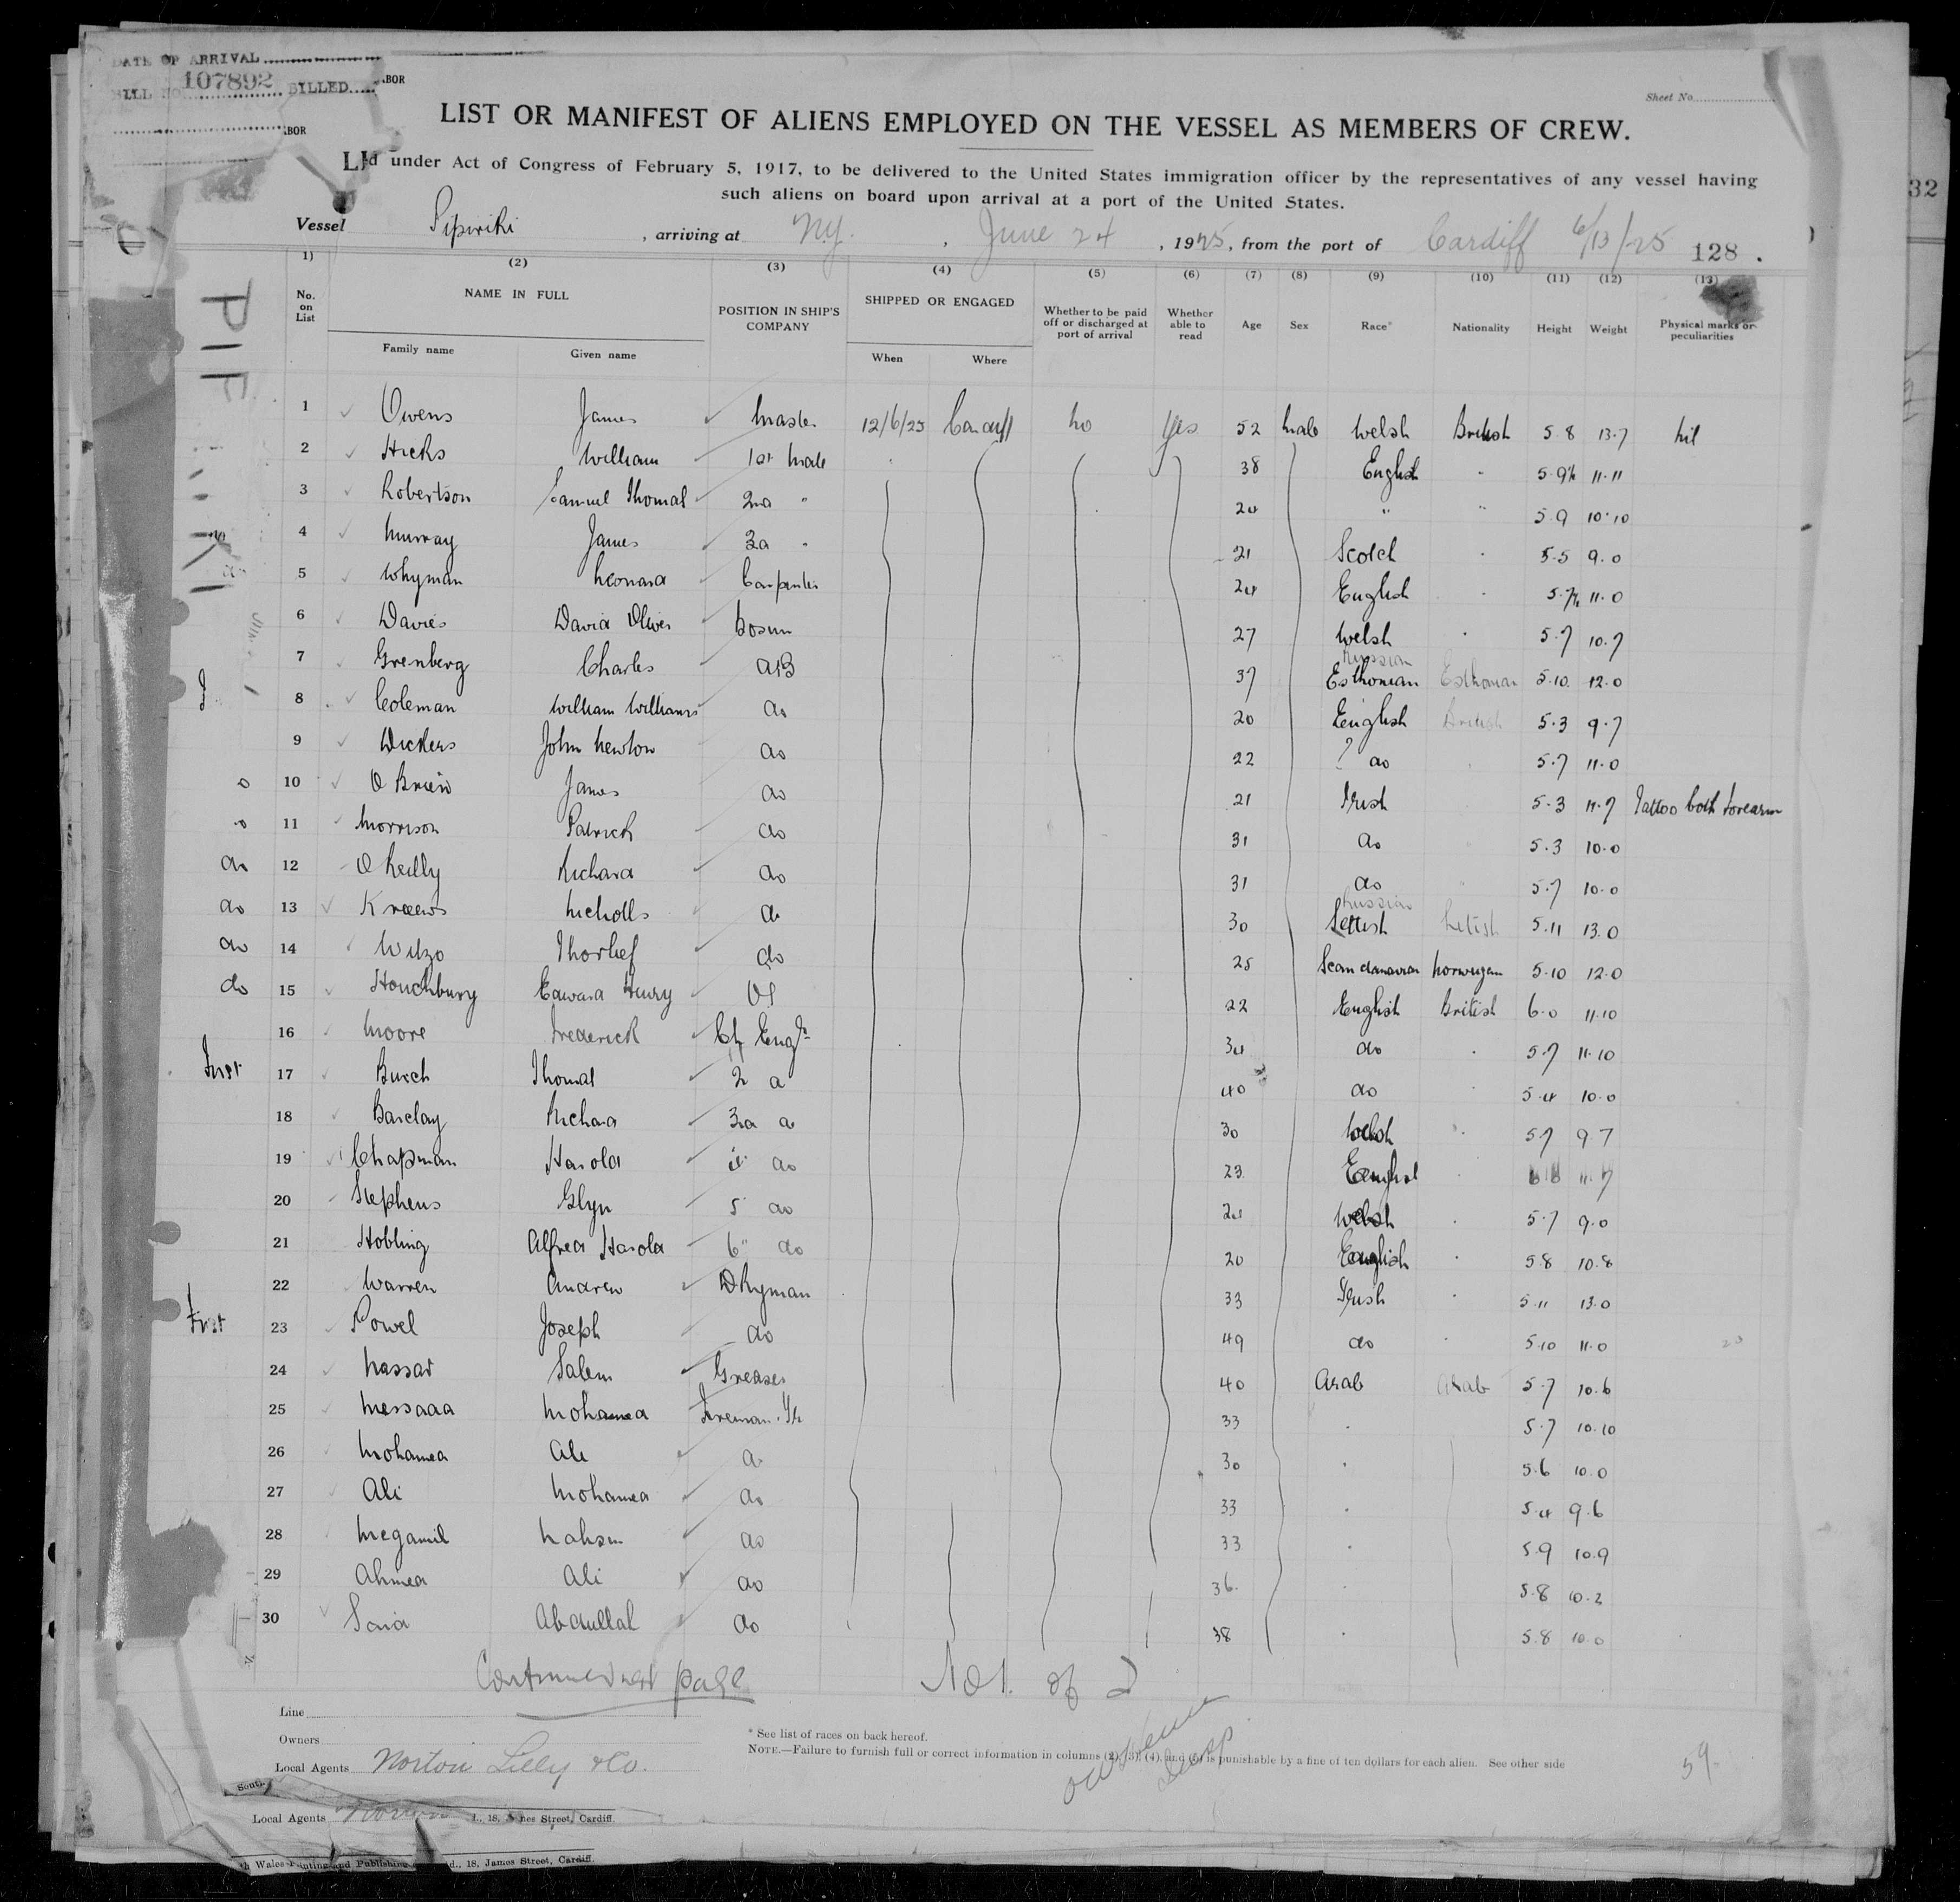 DATE OF ARRIVAL
BILL NO. 107892 BILLED
Sheet No.
LIST OR MANIFEST OF ALIENS EMPLOYED ON THE VESSEL AS MEMBERS OF CREW.
under Act of Congress of February 5, 1917, to be delivered to the United States immigration officer by the representatives of any vessel having
such aliens on board upon arrival at a port of the United States.
Vessel Pipiriki, arriving at N.Y., June 24, 1925, from the port of Cardiff 6/13/25 128
(1) (2) (3) (4) (5) (6) (7) (8) (9) (10) (11) (12) (13)
No. on List NAME IN FULL POSITION IN SHIP'S COMPANY SHIPPED OR ENGAGED Whether to be paid off or discharged at port of arrival Whether able to read Age Sex Race* Nationality Height Weight Physical marks or peculiarities
Family name Given name When Where
1 Owens James Master 12/6/25 Cardiff No Yes 52 Male Welsh British 5.8 13.7 Nil
2 Hicks William 1st Mate 38 English " 5.9½ 11.11
3 Robertson Samuel Thomas 2nd " 24 " " 5.9 10.10
4 Murray James 3d " 21 Scotch " 5.5 9.0
5 Whyman Leonard Carpenter 24 English " 5.7½ 11.0
6 Davies David Oliver Bosun 27 Welsh " 5.7 10.7
7 Grenberg Charles AB 37 Russian Esthonian Esthonian 5.10 12.0
8 Coleman William Williams do 20 English British 5.3 9.7
9 Dickers John Newton do 22 ? do 5.7 11.0
10 O Brien James do 21 Irish 5.3 11.7 Tattoo both forearm
11 Morrison Patrick do 31 do 5.3 10.0
do 12 O Reilly Richard do 31 do 5.7 10.0
do 13 Nicholls do 30 Russian Lettish Letish 5.11 13.0
do 14 Thorlief do 25 Scandanavian Norwegan 5.10 12.0
do 15 Edward Henry OS 22 English British 6.0 11.10
16 Moore Frederick Ch Engr 34 do " 5.7 11.10
17 Burch Thomas 2 d 40 do " 5.4 10.0
18 Barclay Richard 3rd do 30 Welsh " 5.7 9.7
19 Chapman Harold 4 do 23 English 11.7
20 Stephens Glyn 5 do 24 Welsh " 5.7 9.0
21 Hobling Alfred Harold 6" do 20 English " 5.8 10.8
22 Warren Andrew Dkyman 33 Irish " 5.11 13.0
23 Powel Joseph do 49 do " 5.10 11.0
24 Nassar Salem Greaser 40 Arab Arab 5.7 10.6
25 Messaad Mohamed Fireman 33 " 5.7 10.10
26 Mohamed Ali do 30 " 5.6 10.0
27 Ali Mohamed do 33 " 5.4 9.6
28 Megamil do 33 " 5.9 10.9
29 Ahmed Ali do 36 " 5.8 10.2
30 Said Abdullah do 38 " 5.8 10.0
Continued next page No 1. of 2
Line
Owners
Local Agents Norton Lilly & Co.
* See list of races on back hereof.
NOTE.—Failure to furnish full or correct information in columns (2), (3), (4), and (5) is punishable by a fine of ten dollars for each alien. See other side
59
Local Agents Norton 18, James Street, Cardiff.
Wales Printing and Publishing 18, James Street, Cardiff.
32